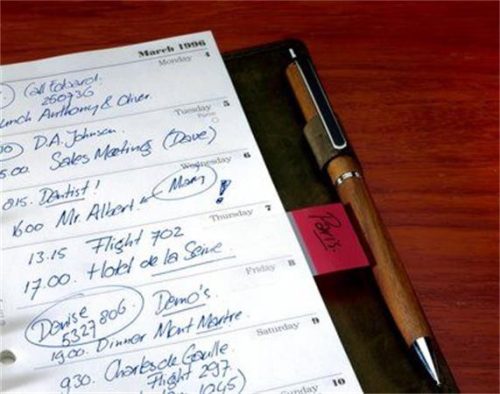 March 1996
Monday 4
Call Edward.
250736
Lunch Anthony & Oliver.
Tuesday 5
D.A. Johnson.
Sales Meeting (Dave)
Wednesday 6
815. Dentist!
1600 Mr. Albert Mary !
Thursday 7
13.15 Flight 702
17.00. Hotel de la Seine
Paris.
Friday 8
Denise
5327806.
Demo's.
19.00. Dinner Mont Martre.
Saturday 9
930. Charles de Gaulle
Flight 297.
10